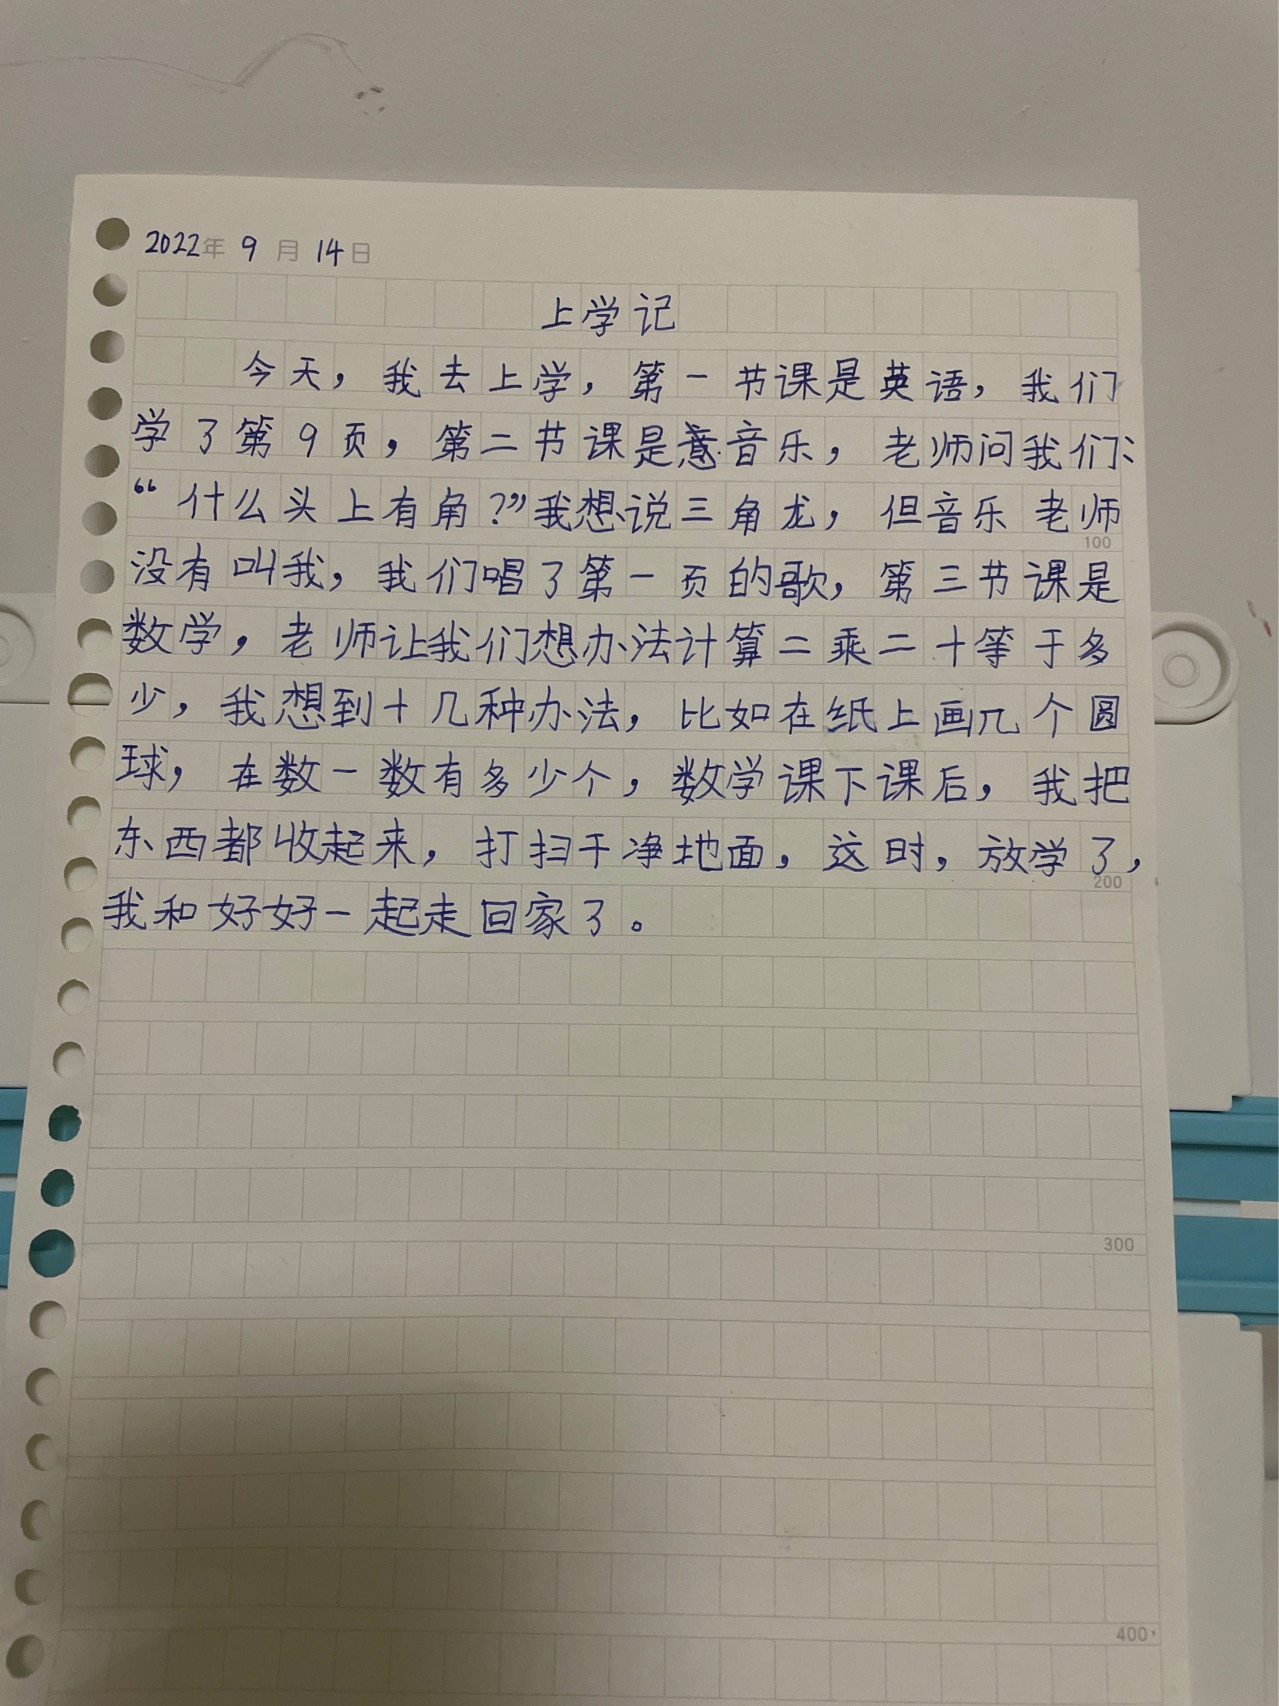 2022年 9 月 14日
上学记
今天，我去上学，第一节课是英语，我们
学了第9页，第二节课是音乐，老师问我们：
“什么头上有角？”我想说三角龙，但音乐老师
100
没有叫我，我们唱了第一页的歌，第三节课是
数学，老师让我们想办法计算二乘二十等于多
少，我想到十几种办法，比如在纸上画几个圆
球，在数一数有多少个，数学课下课后，我把
东西都收起来，打扫干净地面，这时，放学了，
200
我和好好一起走回家了。
300
400